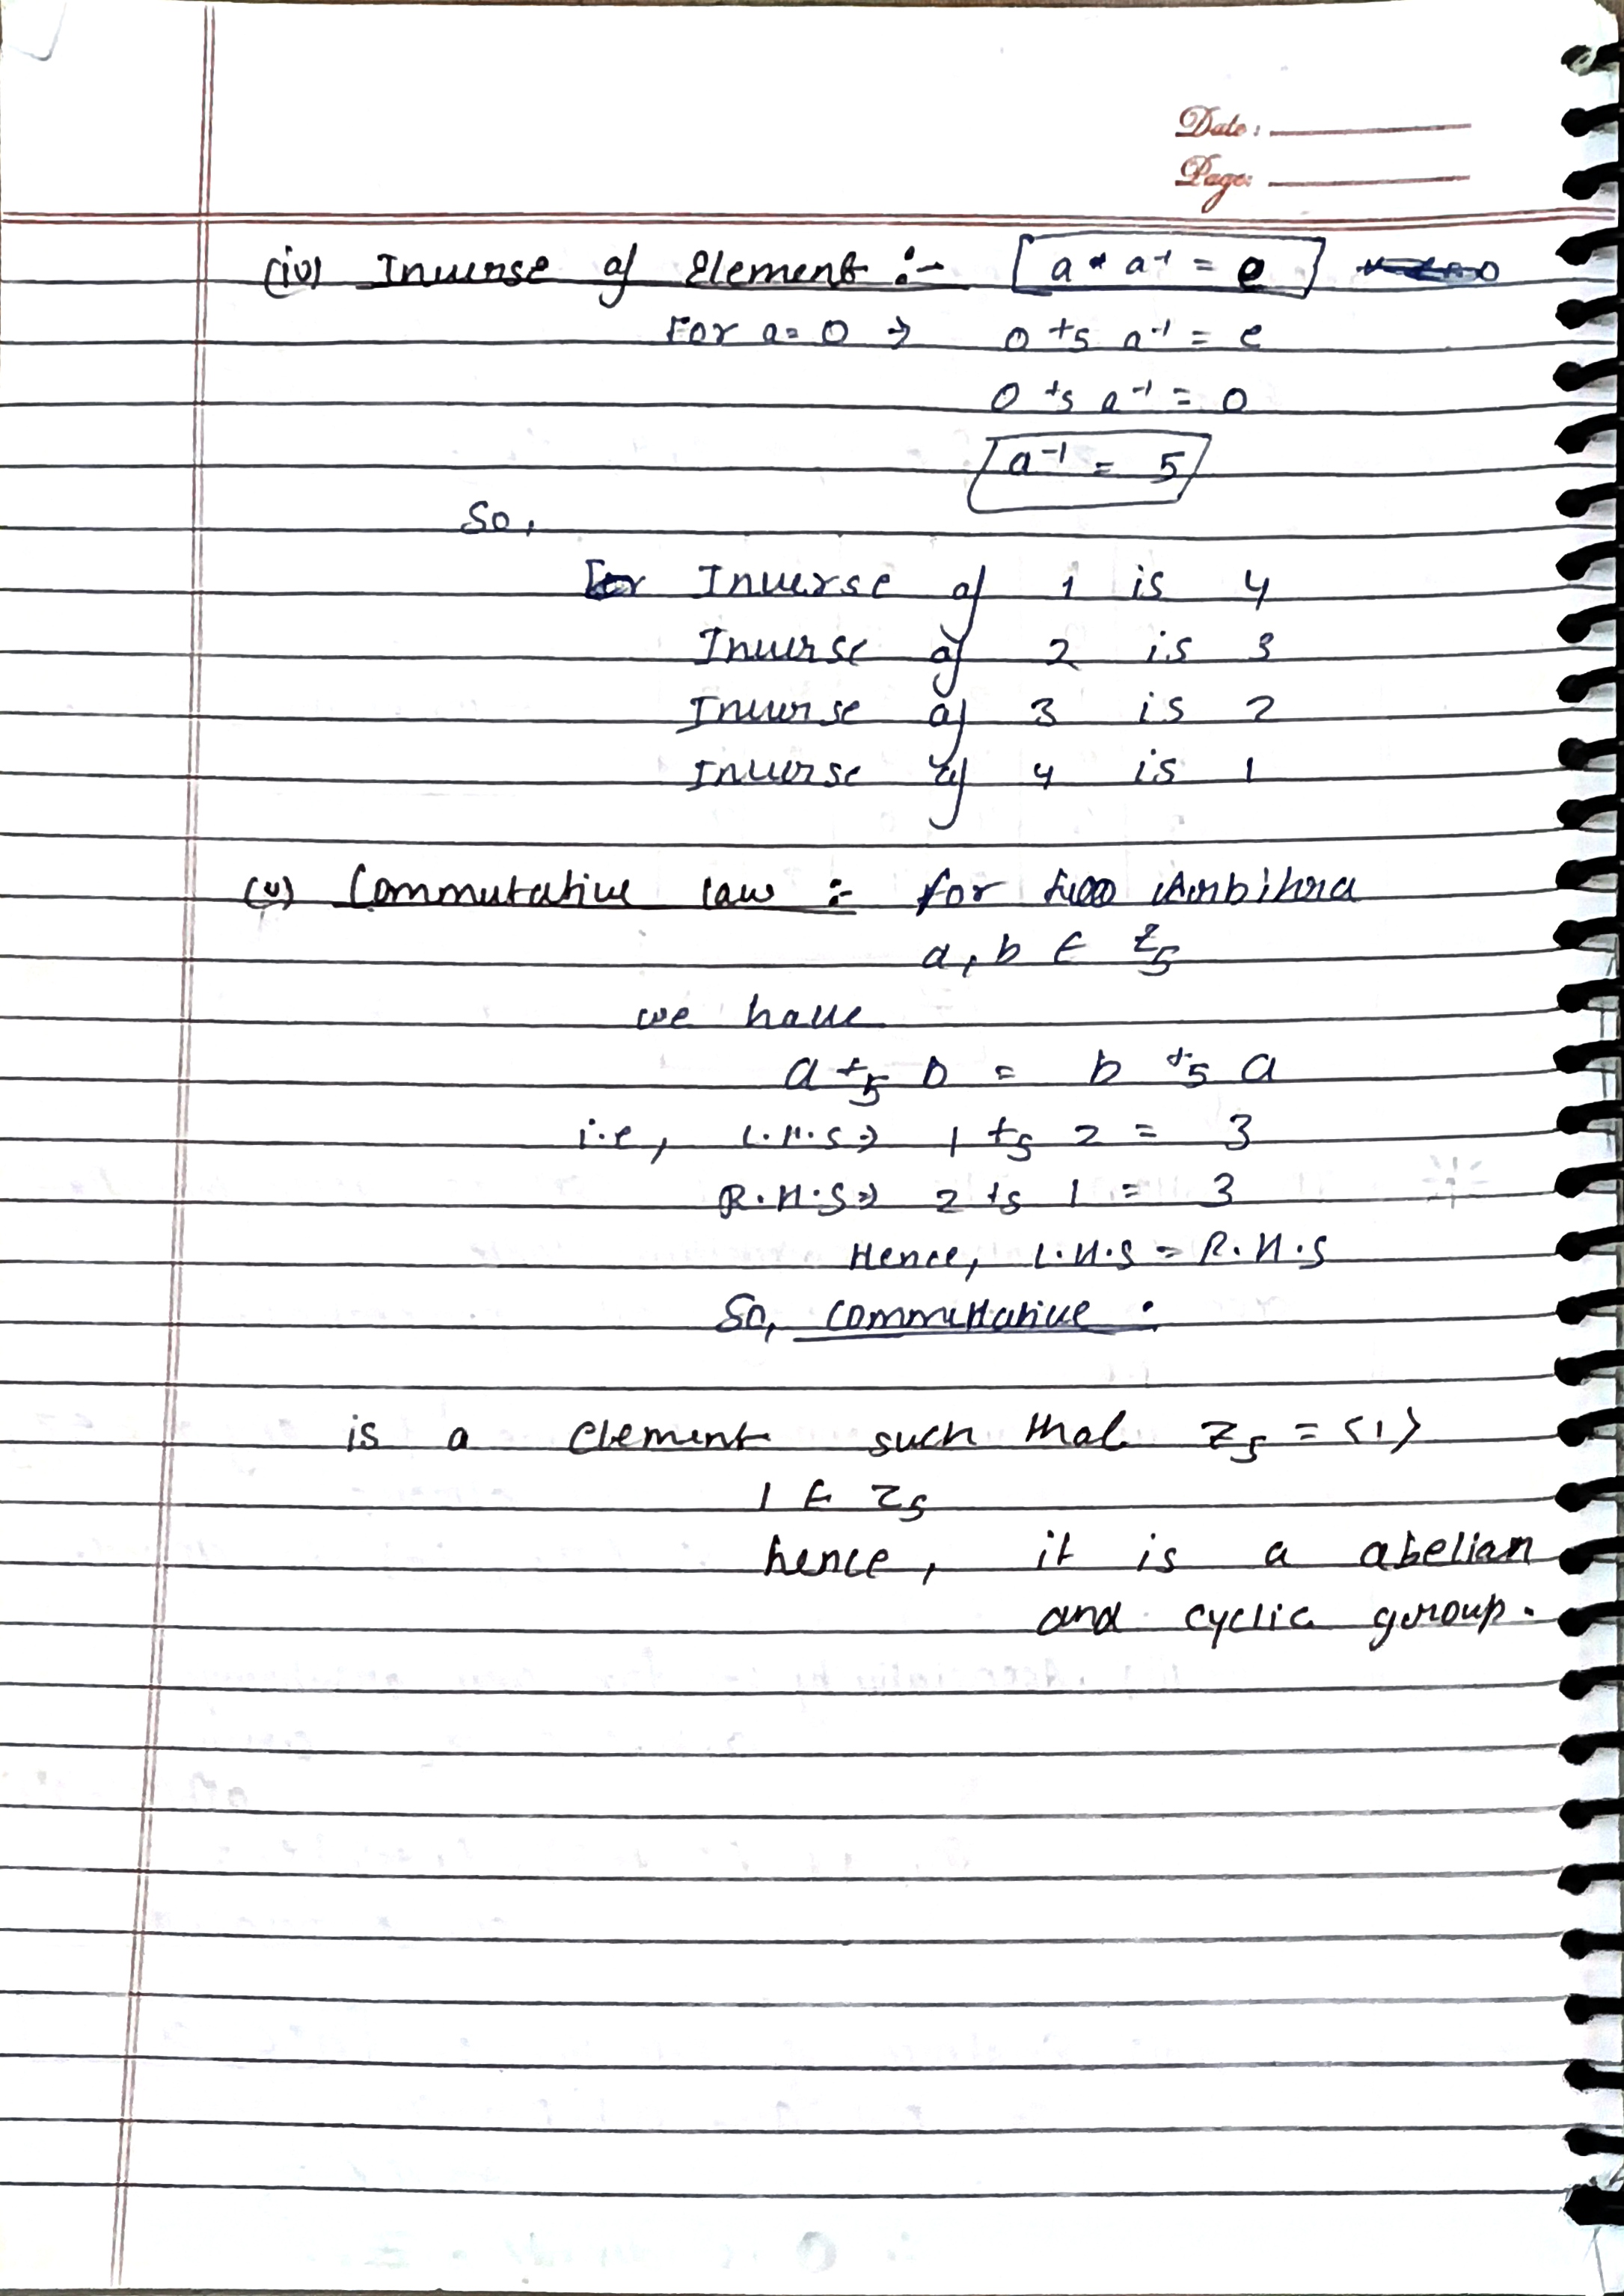 Date:
Page:
(iv) Inverse of Element :- a * a⁻¹ = e
For a = 0 → 0 +5 a⁻¹ = e
0 +5 a⁻¹ = 0
a⁻¹ = 5
So,
Inverse of 1 is 4
Inverse of 2 is 3
Inverse of 3 is 2
Inverse of 4 is 1
(v) Commutative law :- for two
a, b ∈ Z₅
we have
a +₅ b = b +₅ a
i.e, L.H.S ⇒ 1 +5 2 = 3
R.H.S ⇒ 2 +5 1 = 3
Hence, L.H.S = R.H.S
So, commuttative :
is a element such that Z₅ = <1>
1 ∈ Z₅
hence, it is a abelian
and cyclic group.